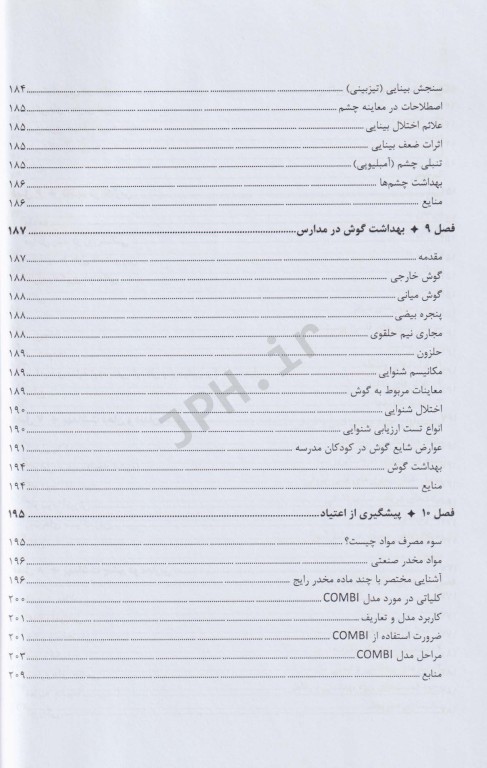 سنجش بینایی (تیزبینی) ۱۸۴
اصطلاحات در معاینه چشم ۱۸۵
علائم اختلال بینایی ۱۸۵
اثرات ضعف بینایی ۱۸۵
تنبلی چشم (آمبلیوپی) ۱۸۵
بهداشت چشم‌ها ۱۸۶
منابع ۱۸۶
فصل ۹ ✦ بهداشت گوش در مدارس ۱۸۷
مقدمه ۱۸۷
گوش خارجی ۱۸۸
گوش میانی ۱۸۸
پنجره بیضی ۱۸۸
مجاری نیم حلقوی ۱۸۸
حلزون ۱۸۹
مکانیسم شنوایی ۱۸۹
معاینات مربوط به گوش ۱۸۹
اختلال شنوایی ۱۹۰
انواع تست ارزیابی شنوایی ۱۹۰
عوارض شایع گوش در کودکان مدرسه ۱۹۱
بهداشت گوش ۱۹۴
منابع ۱۹۴
فصل ۱۰ ✦ پیشگیری از اعتیاد ۱۹۵
سوء مصرف مواد چیست؟ ۱۹۵
مواد مخدر صنعتی ۱۹۶
آشنایی مختصر با چند ماده مخدر رایج ۱۹۶
کلیاتی در مورد مدل COMBI ۲۰۰
کاربرد مدل و تعاریف ۲۰۱
ضرورت استفاده از COMBI ۲۰۱
مراحل مدل COMBI ۲۰۳
منابع ۲۰۹
JPH.ir